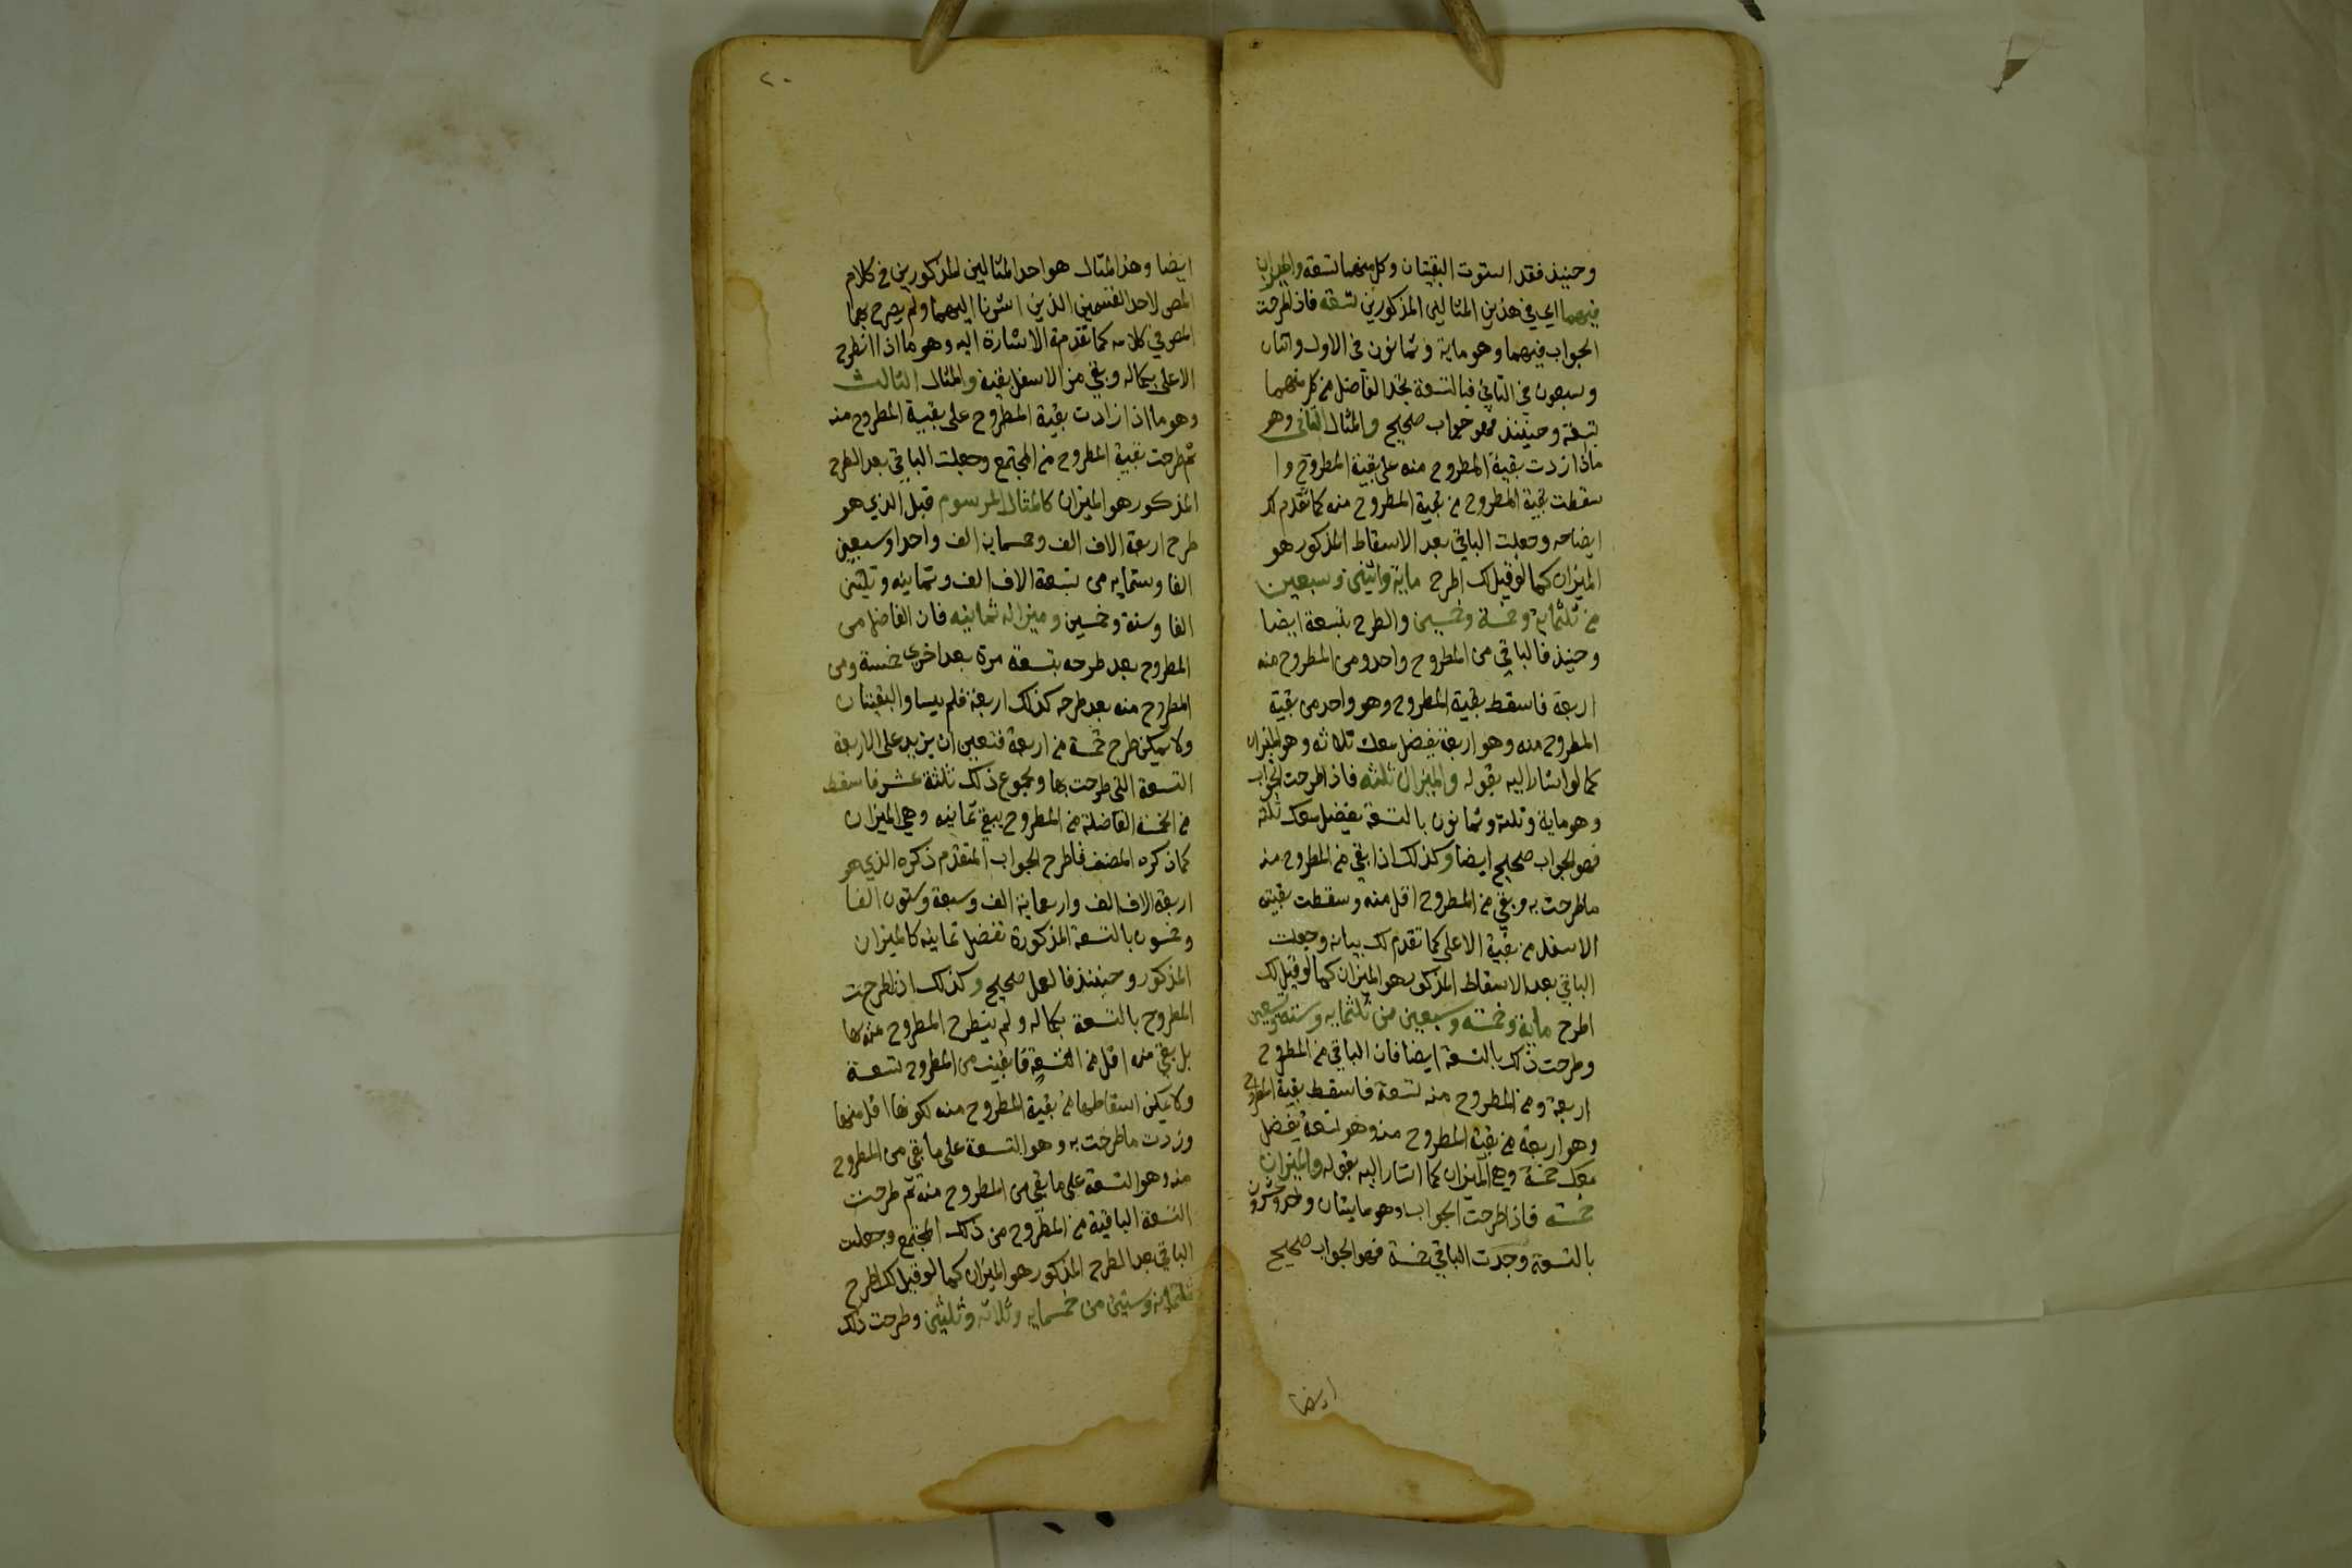 وحينيذ فقد استوت البقيتان وكل منهما تسعة والميزان
فيهما اي في هذين المثالين المذكورين تسعة فاذا طرحت
الجواب فيهما وهو ماية وثمانون في الاول واثنان
وسبعون في الثاني فبالتسعة تجد الفاضل من كل منهما
تسعة وحينئذ فهو جواب صحيح والمثال الثاني وهو
ما اذا زدت بقية المطروح منه على بقية المطروح وا
سقطت بقية المطروح من بقية المطروح منه كما تقدم لك
ايضاحه وجعلت الباقي بعد الاسقاط المذكور هو
الميزان كما لو قيل لك اطرح ماية واثنين وسبعين
من ثلثماية وخمسة وخمسين والطرح بتسعة ايضا
وحينيذ فالباقي من المطروح واحد ومن المطروح منه
اربعة فاسقط بقية المطروح وهو واحد من بقية
المطروح منه وهو اربعة يفضل معك ثلاثه وهو الميزان
كما لو اشار اليه بقوله والميزان ثلثه فاذا طرحت الجواب
وهو ماية وثلثة وثمانون بالتسعة يفضل معك ثلثه
فهو الجواب صحيح ايضا وكذلك اذا بقي من المطروح منه
ما طرحت به وبقي من المطروح اقل منه وسقطت بقيته
الاسفل من بقية الاعلى كما تقدم لك بيانه وجعلت
الباقي بعد الاسقاط المذكور هو الميزان كما لو قيل لك
اطرح ماية وخمسه وسبعين من ثلثمايه وسته وتسعين
وطرحت ذلك بالتسعة ايضا فان الباقي من المطروح
اربعة ومن المطروح منه تسعة فاسقط بقية المطروح
وهو اربعة من بقية المطروح منه وهو تسعة يفضل
معك خمسة وهي الميزان كما اشار اليه بقوله والميزان
خمسه فاذا طرحت الجواب وهو مايتان واحد وعشرون
بالتسعة وجدت الباقي خمسة فهو الجواب صحيح
ايضا
٢٠
ايضا وهذا المثال هو احد المثالين المذكورين في كلام
المص لاحد القسمين الذين اشرنا اليهما ولم يصرح بهما
المص في كلامه كما تقدمة الاشارة اليه وهو ما اذا انطرح
الاعلى بكماله وبقي من الاسفل بقية والمثال الثالث
وهو ما اذا زادت بقية المطروح على بقية المطروح منه
ثم طرحت بقية المطروح من المجتمع وجعلت الباقي بعد الطرح
المذكور هو الميزان كالمثال المرسوم قبل الذي هو
طرح اربعة الاف الف وخمسماية الف واحدا وسبعين
الفا وستمايه من تسعة الاف الف وثمانيه وثلثين
الفا وستة وخمسين وميزانه ثمانيه فان الفاضل من
المطروح بعد طرحه بتسعة مرة بعد اخرى خمسة ومن
المطروح منه بعد طرحه كذلك اربعة فلم يساوا البقيتان
ولا يمكن طرح خمسة من اربعة فتعين ان يزيد على الاربعة
التسعة التي طرحت بها ومجموع ذلك ثلثة عشر فاسقط
من الخمسة الفاضلة من المطروح يبقي ثمانيه وهي الميزان
كما ذكره المصنف فاطرح الجواب المتقدم ذكره الذي هو
اربعة الاف الف واربعماية الف وسبعة وستون الفا
وخمسون بالتسعة المذكورة تفضل ثمانيه كالميزان
المذكور وحينئذ فالعمل صحيح وكذلك اذا طرحت
المطروح بالتسعة بكماله ولم ينطرح المطروح منه بها
بل بقي منه اقل من التسعة فابقيت من المطروح تسعة
ولا يمكن اسقاطها من بقية المطروح منه لكونها اقل منها
وزدت ما طرحت به وهو التسعة على ما بقي من المطروح
منه وهو التسعة على ما بقي من المطروح منه ثم طرحت
التسعة الباقية من المطروح من ذلك المجتمع وجعلت
الباقي بعد الطرح المذكور هو الميزان كما لو قيل لك اطرح
ثلثمائة وستين من خمسمايه وثلاثه وثلثين وطرحت ذلك